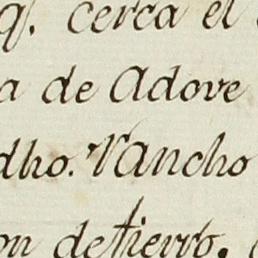 q. cerca el
a de Adove
dho. Rancho
on de fierro.